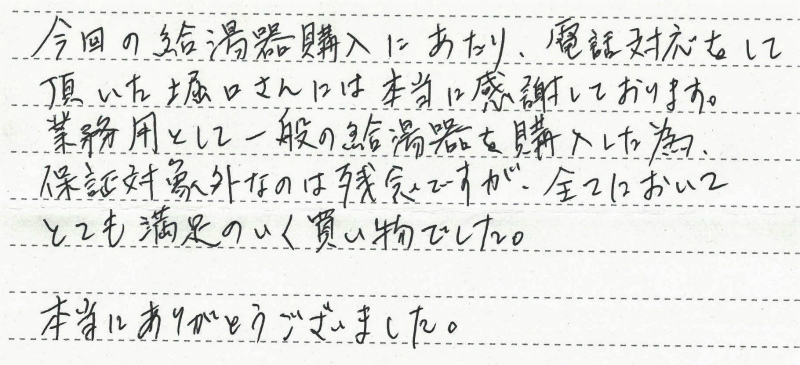 今回の給湯器購入にあたり、電話対応をして
頂いた堀口さんには本当に感謝しております。
業務用として一般の給湯器を購入した為、
保証対象外なのは残念ですが、全てにおいて
とても満足のいく買い物でした。
本当にありがとうございました。